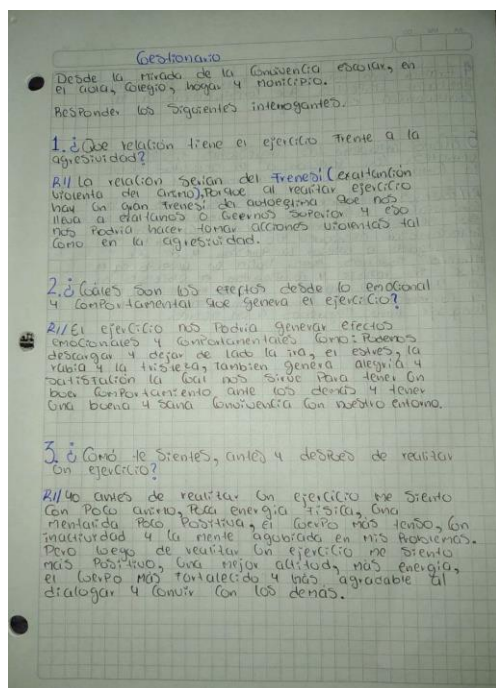 Cestionario
Desde la mirada de la Convivencia escolar, en
el aula, colegio, hogar y monicipio.
Responder los siguientes interrogantes.
1. ¿Que relación tiene el ejercicio frente a la
agresividad?
R// La relacion serian del Frenesi (exaltanción
violenta del animo). Porque al realizar ejercicio
hay un gran frenesi del autoeglima que nos
lleva a exaltarnos o creernos superior y eso
nos podria hacer tomar acciones violentas tal
como en la agresividad.
2. ¿Cuáles son los efectos desde lo emocional
y comportamental que genera el ejercicio?
R// El ejercicio nos podria generar efectos
emocionales y comportamentales como: Podemos
descargar y dejar de lado la ira, el estres, la
rabia y la tristeza, tambien genera alegria y
satisfación la cual nos sirve para tener un
buen comportamiento ante los demas y tener
una buena y sana convivencia con nuestro entorno.
3. ¿Como te sientes, antes y despues de realizar
un ejercicio?
R// yo antes de realizar un ejercicio me siento
con poco animo, poca energia fisica, una
mentalida poco positiva, el cuerpo más tenso, con
inactividad y la mente agobiada en mis problemas.
Pero luego de realizar un ejercicio me siento
más positivo, una mejor actitud, más energia,
el cuerpo más fortalecido y más agradable al
dialogar y convir con los demás.